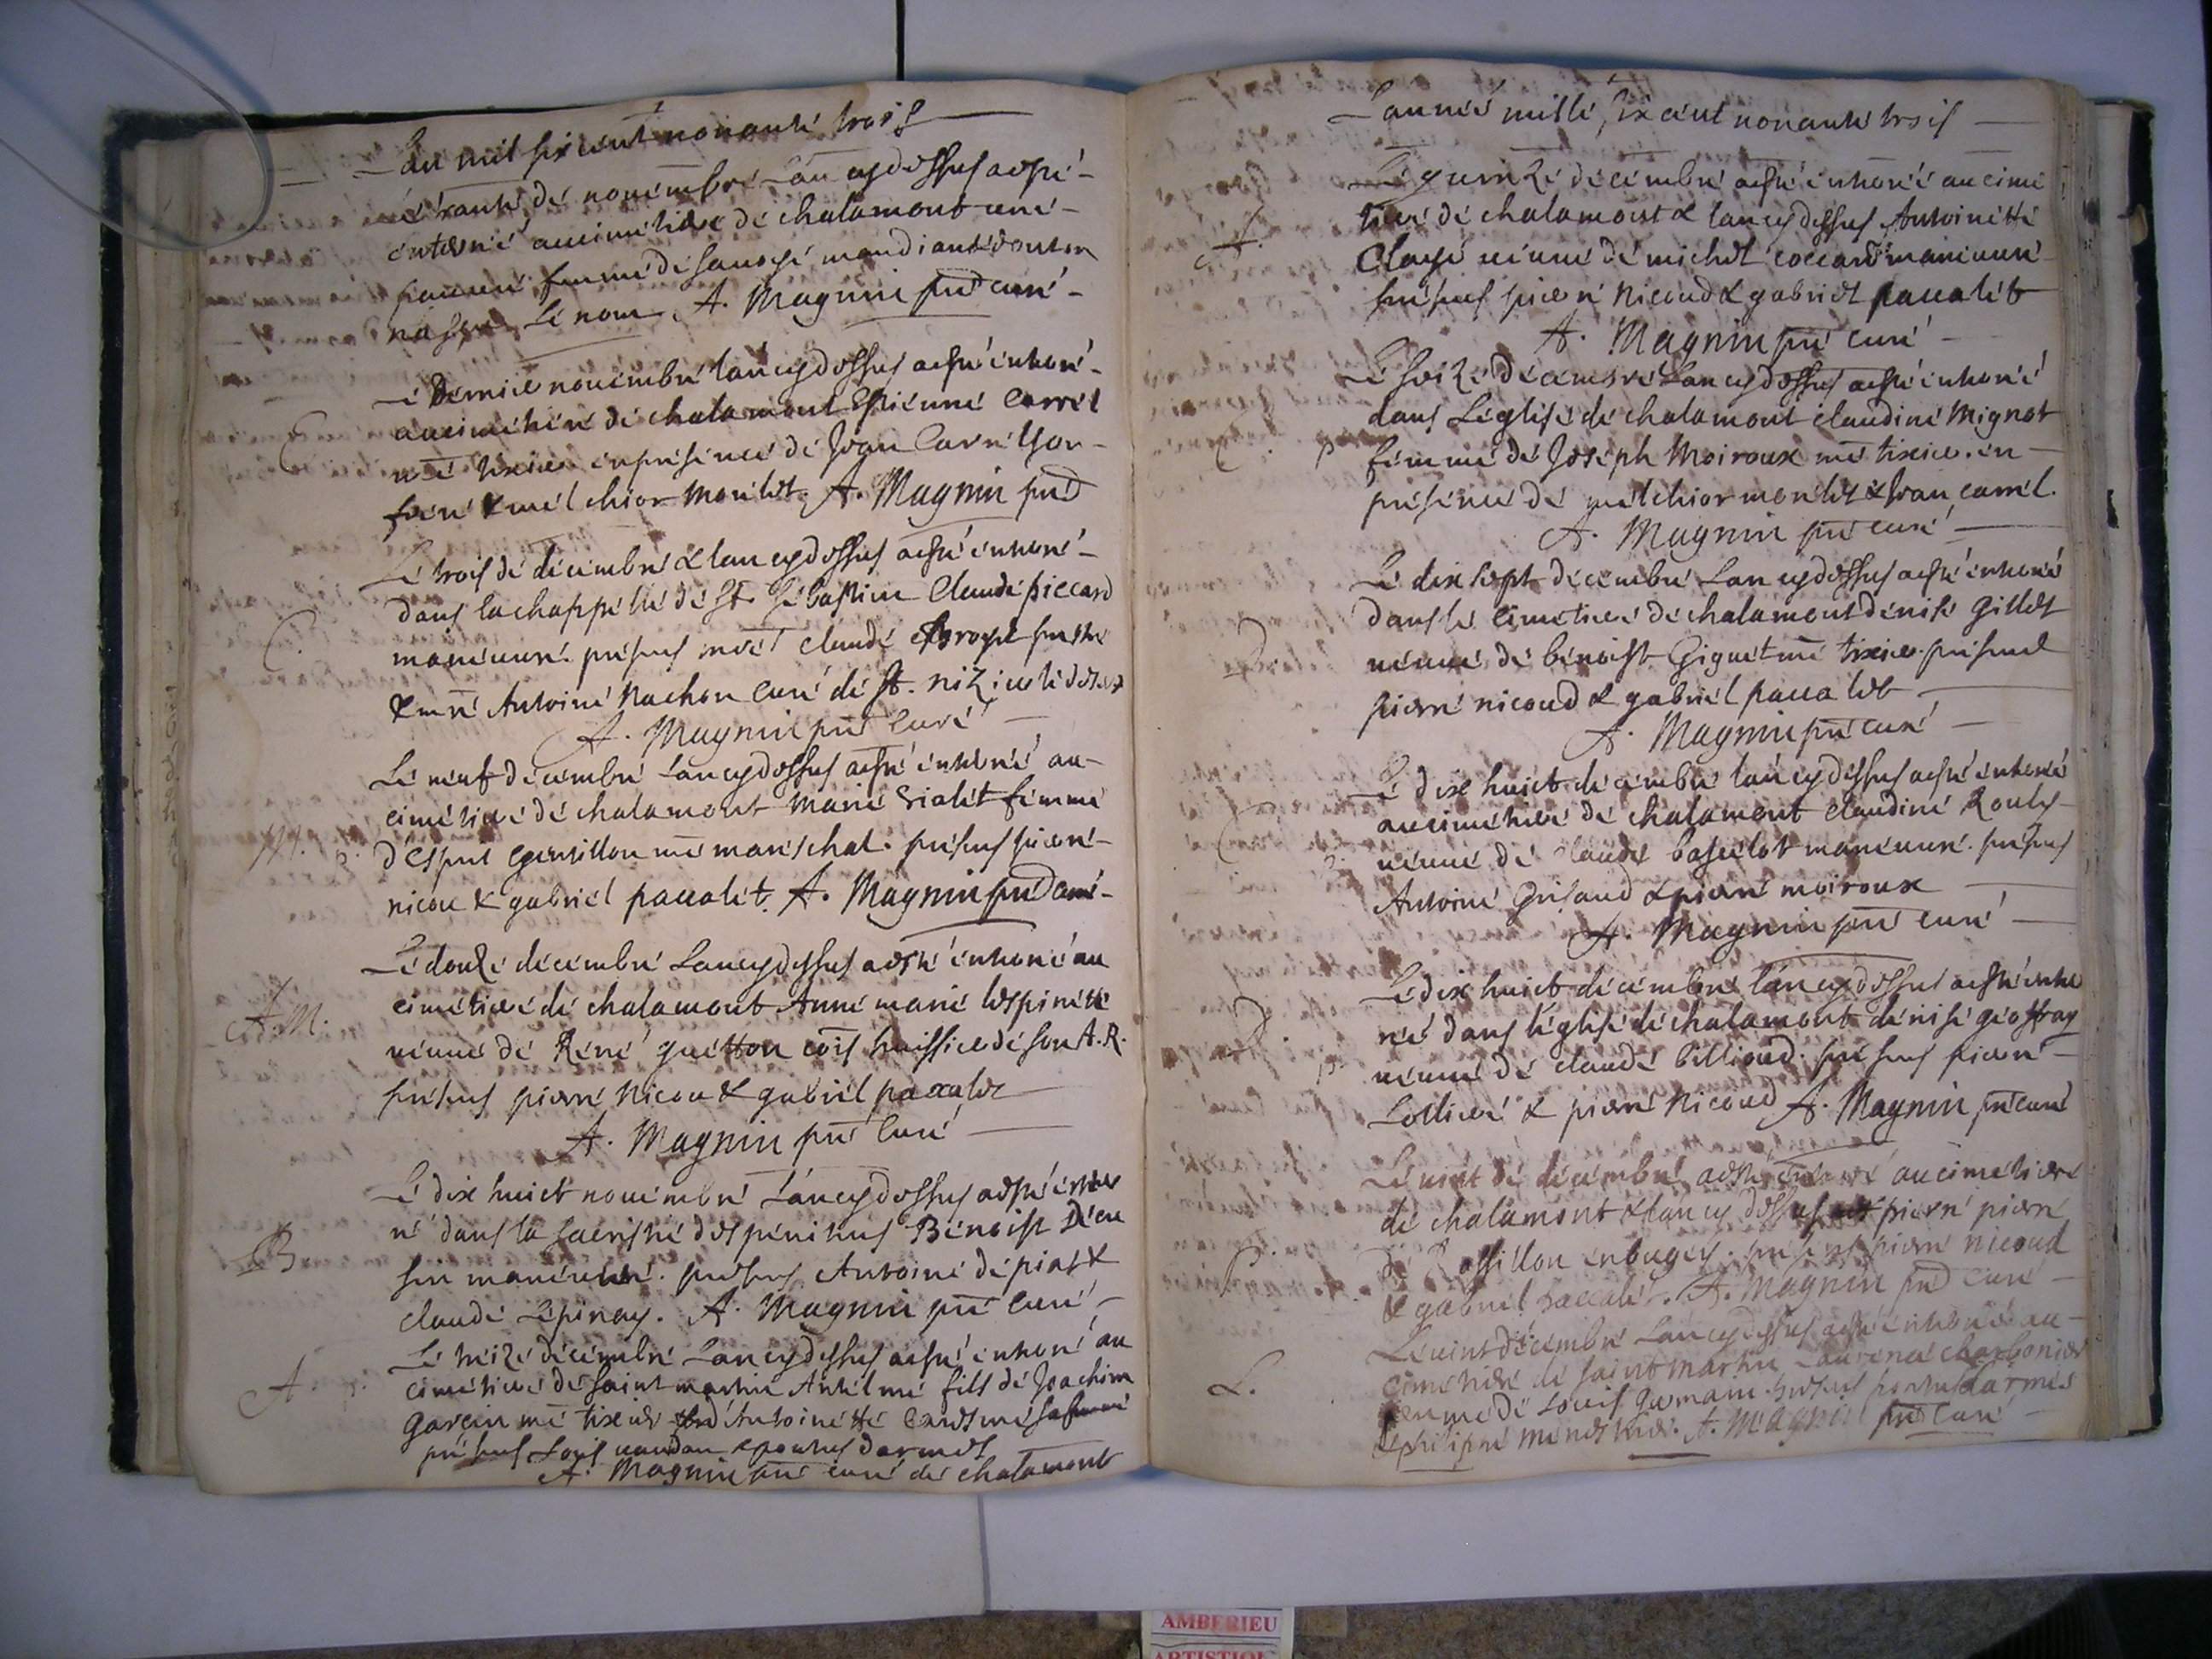 Lan mil six cent nonante trois
Le trante de nouembre Lan cy dessus a esté
enterré au cimetiere de chalamont une
pauure femme de sauoye mandiante dont on
na sceu Le nom A. Magnin pre curé
Le dernier nouembre lan cy dessus a esté enterré
E
au cimetiere de chalamont Estienne Carrel
me tixier en presence de Jean Carrel son
frere & melchior monlet. A. Magnin pre
Le trois de decembre & lan cy dessus a esté enterré
dans la chappelle de St. sebastien Claude piccard
C.
manieuure. presens mre claude prestre
& mre Antoine Rachon curé de St. nizier le desert
A. Magnin pre Curé
Le neuf decembre Lan cy dessus a esté enterré au
cimetiere de chalamont Marie Vialet femme
M. p.
d'esprit me mareschal. presens pierre
nicou & gabriel paccalet. A. Magnin pre curé
Le douze decembre Lan cy dessus a esté enterré au
cimetiere de chalamont Anne marie lespinette
A.M.
veuue de René guetton huissier de son A.R.
presens pierre Nicou & gabriel paccalet
A. Magnin pre Curé
Le dix huict nouembre Lan cy dessus a esté enter
ré dans la des penitens Benoist
B
manieuure. presens Antoine depias &
claude Lépinay. A. Magnin pre Curé
Le treize decembre Lan cy dessus a esté enterré au
A
cimetiere de saint martin Antelme fils de Joachim
garcin me tixier & d'Antoinette sa femme
presens Louis & ponthus darmes
A. Magnin pre curé de chalamont
L'année mille six cent nonante trois
Le quinze decembre a esté enterré au cime
tiere de chalamont & lan cy dessus Antoinette
A.
Claye veuue de michel coccard manieuure
presens pierre Nicoud & gabriel paccalet
A. Magnin pre curé
Le seize decembre Lan cy dessus a esté enterré
dans L'église de chalamont claudine Mignot
C. p.
femme de Joseph Moiroux me tixier. en
presence de melchior monlet & Jean carrel.
A. Magnin pre curé
Le dix sept decembre Lan cy dessus a esté enterré
dans le cimetiere de chalamont denise Gillet
D.
veuue de benoist Giguet me tixier. presens
pierre nicoud & gabriel paccalet
A. Magnin pre curé
Le dix huict decembre lan cy dessus a esté enterré
au cimetiere de chalamont claudine Rouly
C
veuue de claude manieuure. presens
Antoine Grisaud & pierre moiroux
A. Magnin pre curé
Le dix huict decembre lan cy dessus a esté enter
ré dans l'église de chalamont denise geoffray
D. p.
veuue de claude billioud. presens pierre
& pierre Nicoud A. Magnin pre curé
Le vint de decembre a esté enterré au cimetiere
de chalamont & lan cy dessus pierre pierre
P.
de Rossillon en bugey. presens pierre nicoud
& gabriel paccalet. A. Magnin pre curé
Le vint decembre Lan cy dessus a esté enterré au
cimetiere de saint martin Laurence charbonier
L.
femme de Louis Germain. presens ponthus darmes
& philippe. A. Magnin pre Curé
AMBERIEU